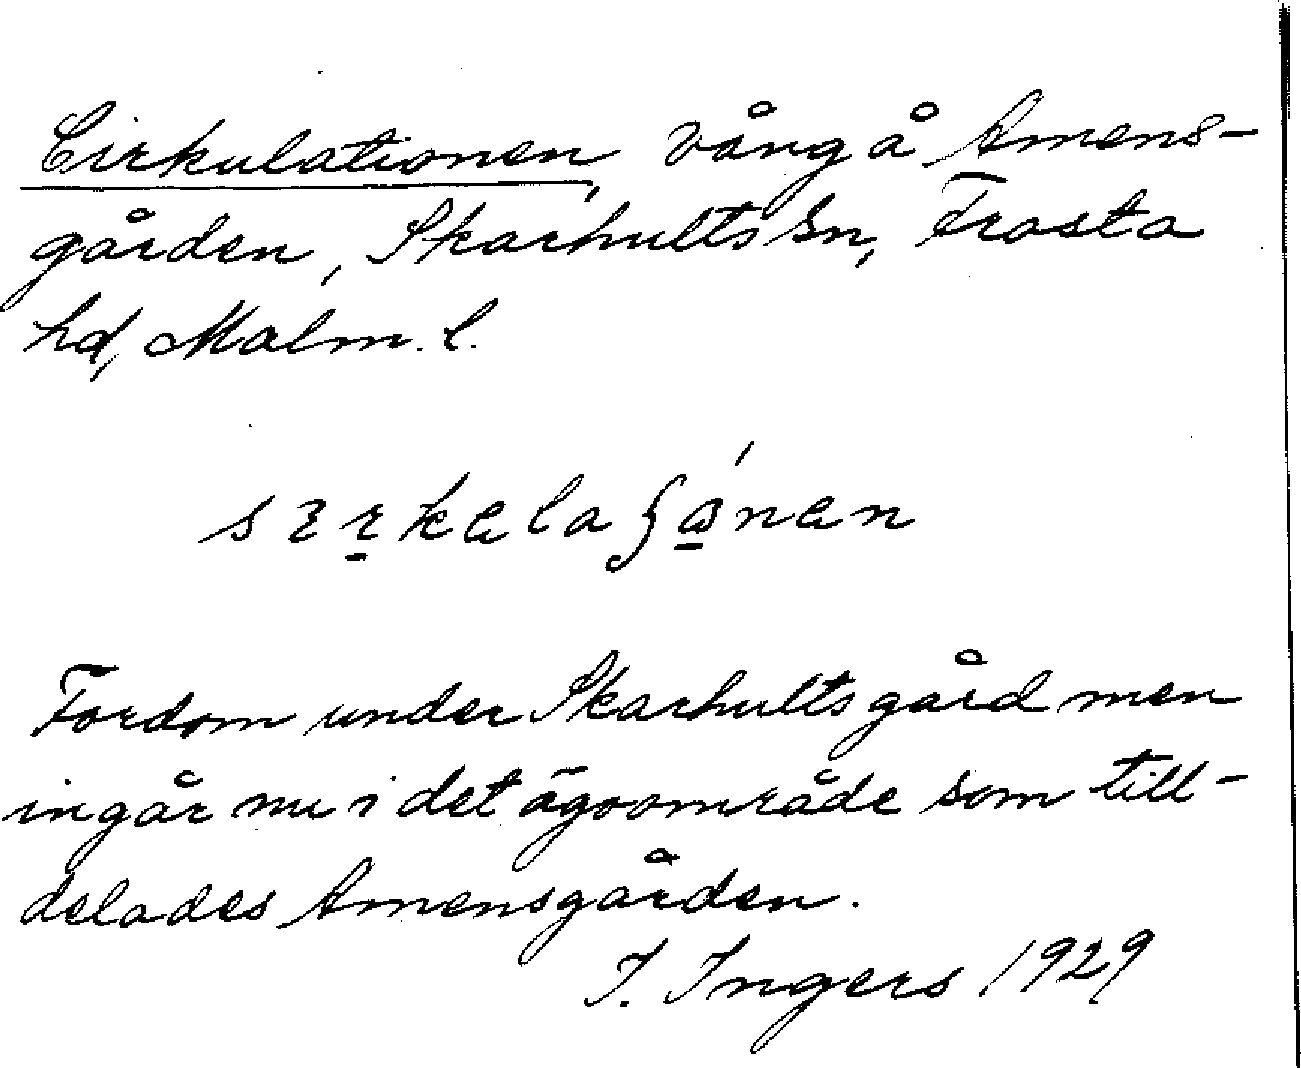 Cirkulationen, vång å Amens-
gården, Skarhults sn, Frosta
hd, Malm. l.
Fordom under Skarhults gård men
ingår nu i det ägoområde som till-
delades Amensgården.
I. Ingers 1929